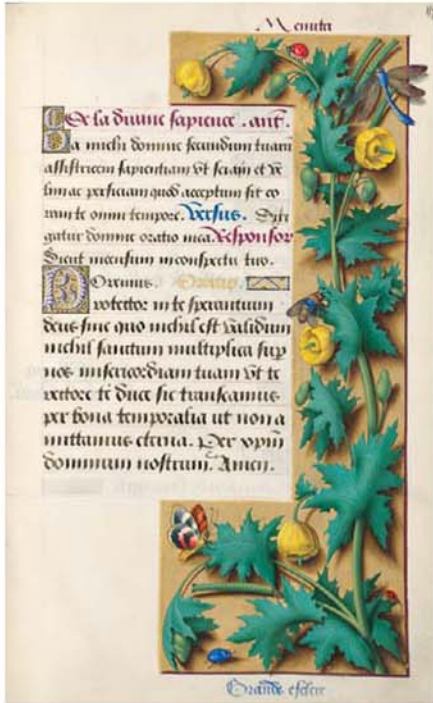 Menuta
De la divine sapience . ant.
Da michi domine secundum tuam
assistricem sapientiam vt sciam et ve
lim ac perficiam quod acceptum sit co
ram te omni tempore. Versus. Diri
gatur domine oratio mea. Responsor
Sicut incensum in conspectu tuo.
Oremus. Oratio.
Protector in te sperantium
deus sine quo nichil est validum
nichil sanctum multiplica sup
nos misericordiam tuam vt te
rectore te duce sic transeamus
per bona temporalia ut non a
mittamus eterna. Per xpm
dominum nostrum. Amen.
Grande esclere